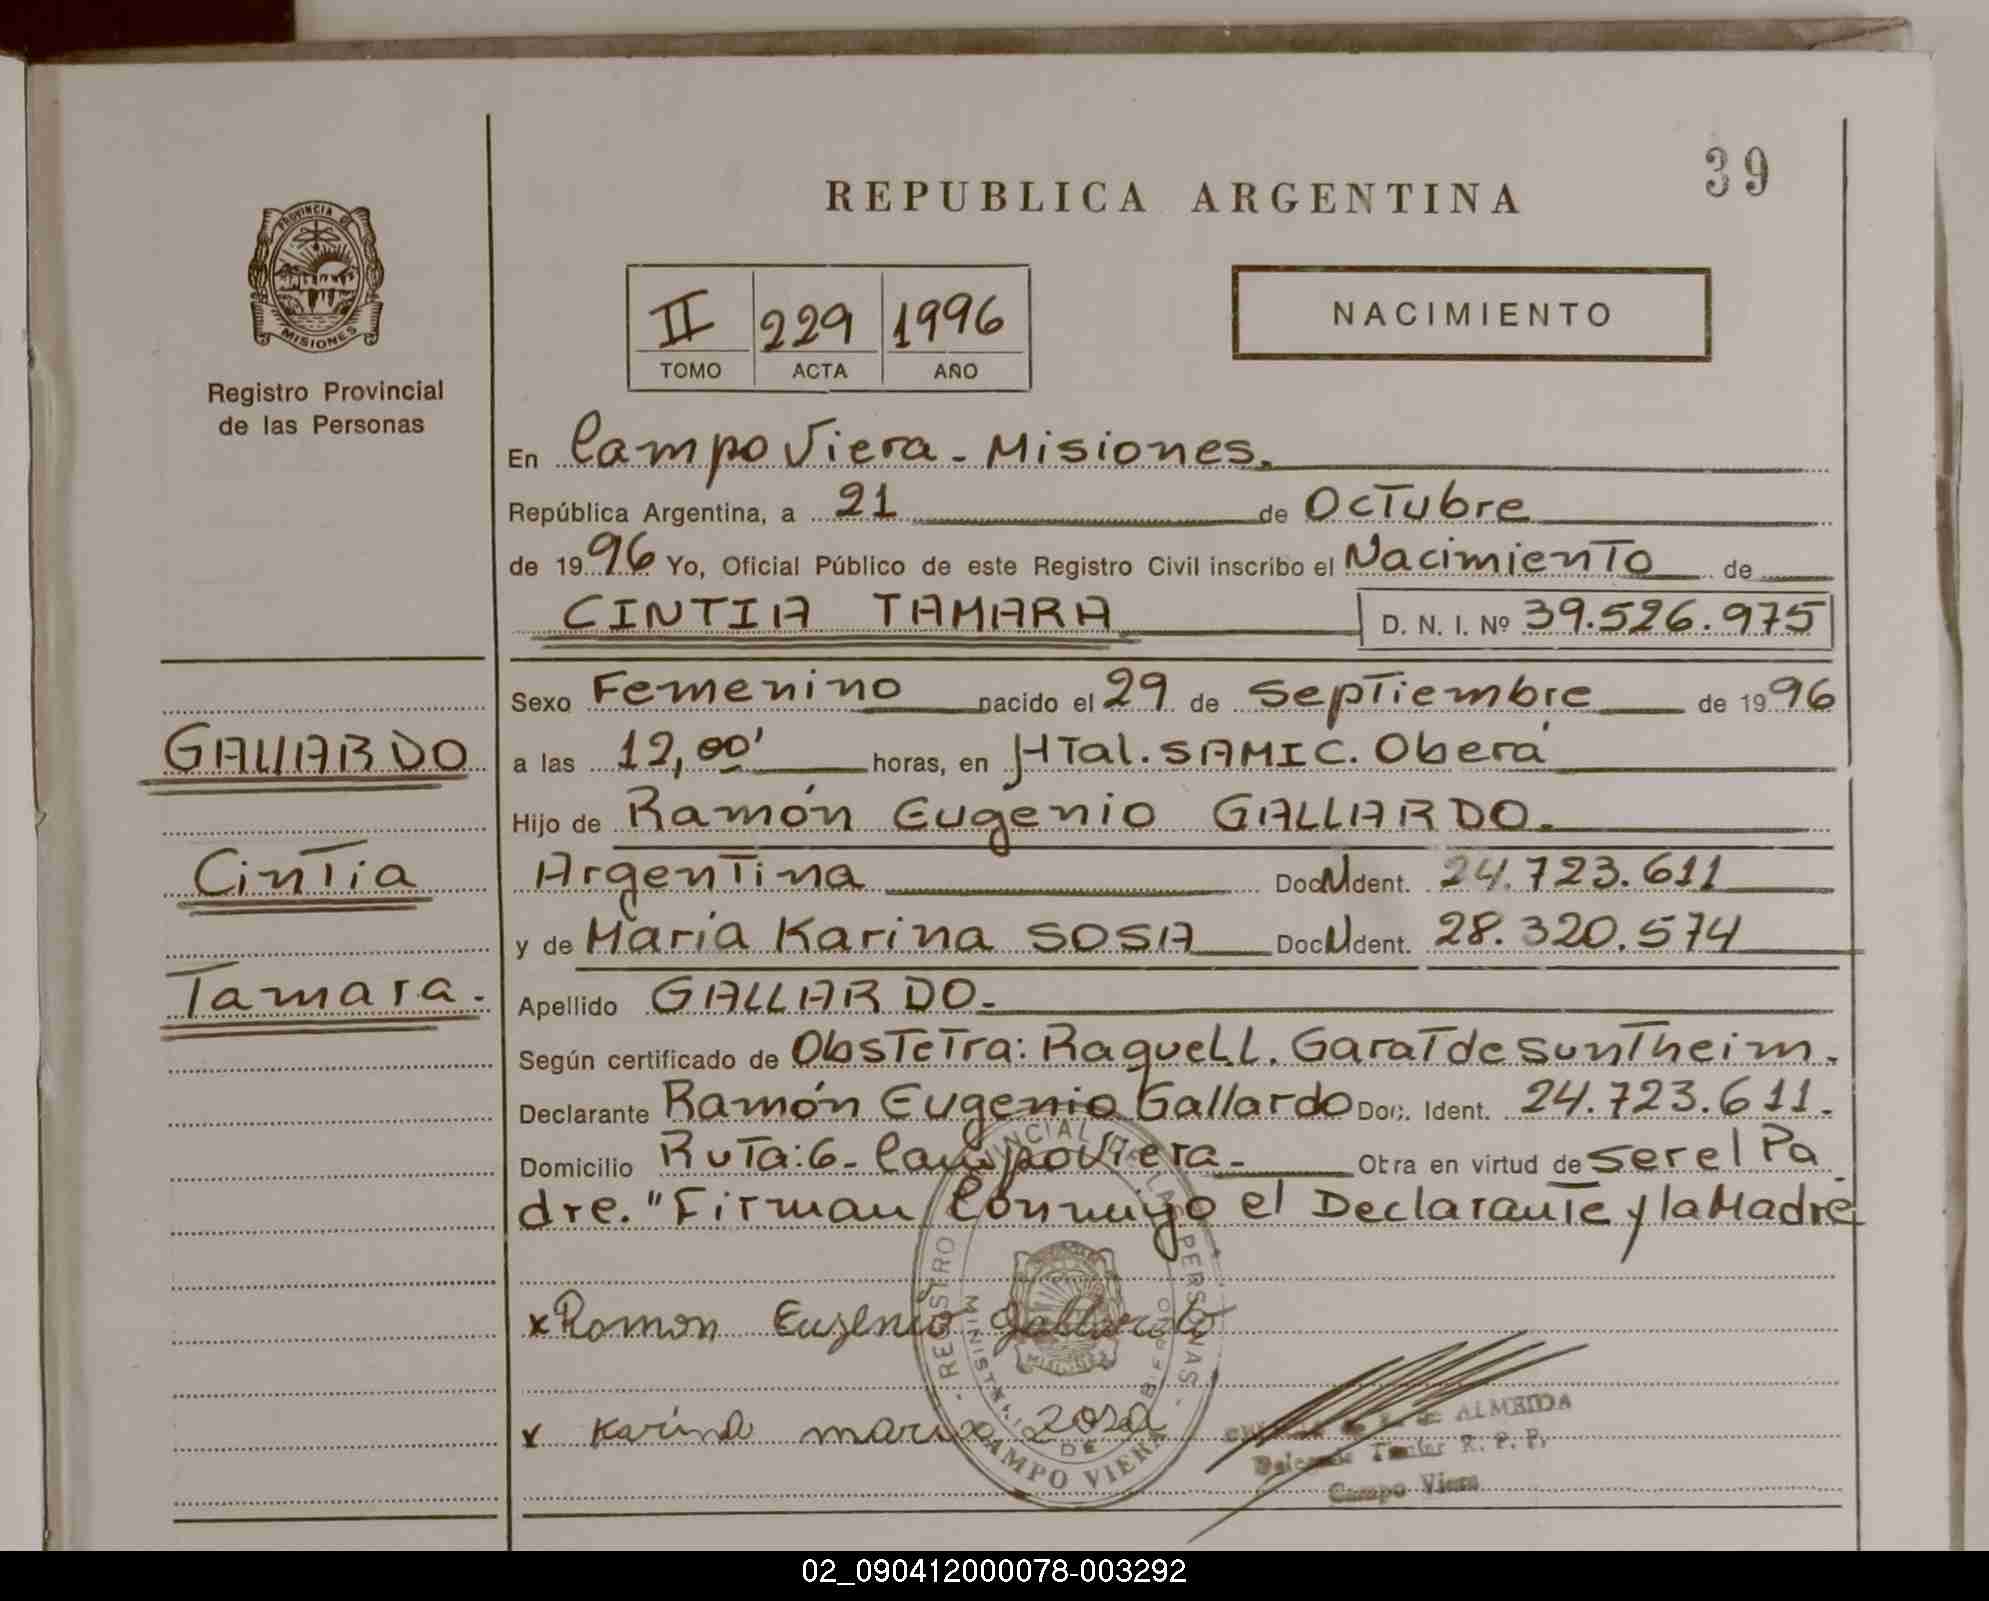 39
REPUBLICA ARGENTINA
PROVINCIA DE
MISIONES
Registro Provincial
de las Personas
II 229 1996
TOMO ACTA AÑO
NACIMIENTO
En Campo Viera - Misiones.
República Argentina, a 21 de Octubre
de 1996 Yo, Oficial Público de este Registro Civil inscribo el Nacimiento de
CINTIA TAMARA D. N. I. Nº 39.526.975
Sexo Femenino nacido el 29 de Septiembre de 1996
GALLARDO
a las 12,00' horas, en HTal. SAMIC. Oberá
Hijo de Ramón Eugenio GALLARDO.
Cintia
Argentina Doc. Ident. 24.723.611
y de María Karina SOSA Doc. Ident. 28.320.574
Tamara.
Apellido GALLARDO.
Según certificado de Obstetra: Raquel L. Garat de Suntheim.
Declarante Ramón Eugenio Gallardo Doc. Ident. 24.723.611.
Domicilio Ruta: 6 - Campo Viera - Obra en virtud de ser el Pa
dre. "Firman Conmigo el Declarante y la Madre
x Ramon Eugenio Gallardo
x Karina maria Zosa
REGISTRO PROVINCIAL DE LAS PERSONAS
MINISTERIO DE GOBIERNO
MISIONES
CAMPO VIERA
ALMEIDA
Delegado Titular R. P. P.
Campo Viera
02_090412000078-003292